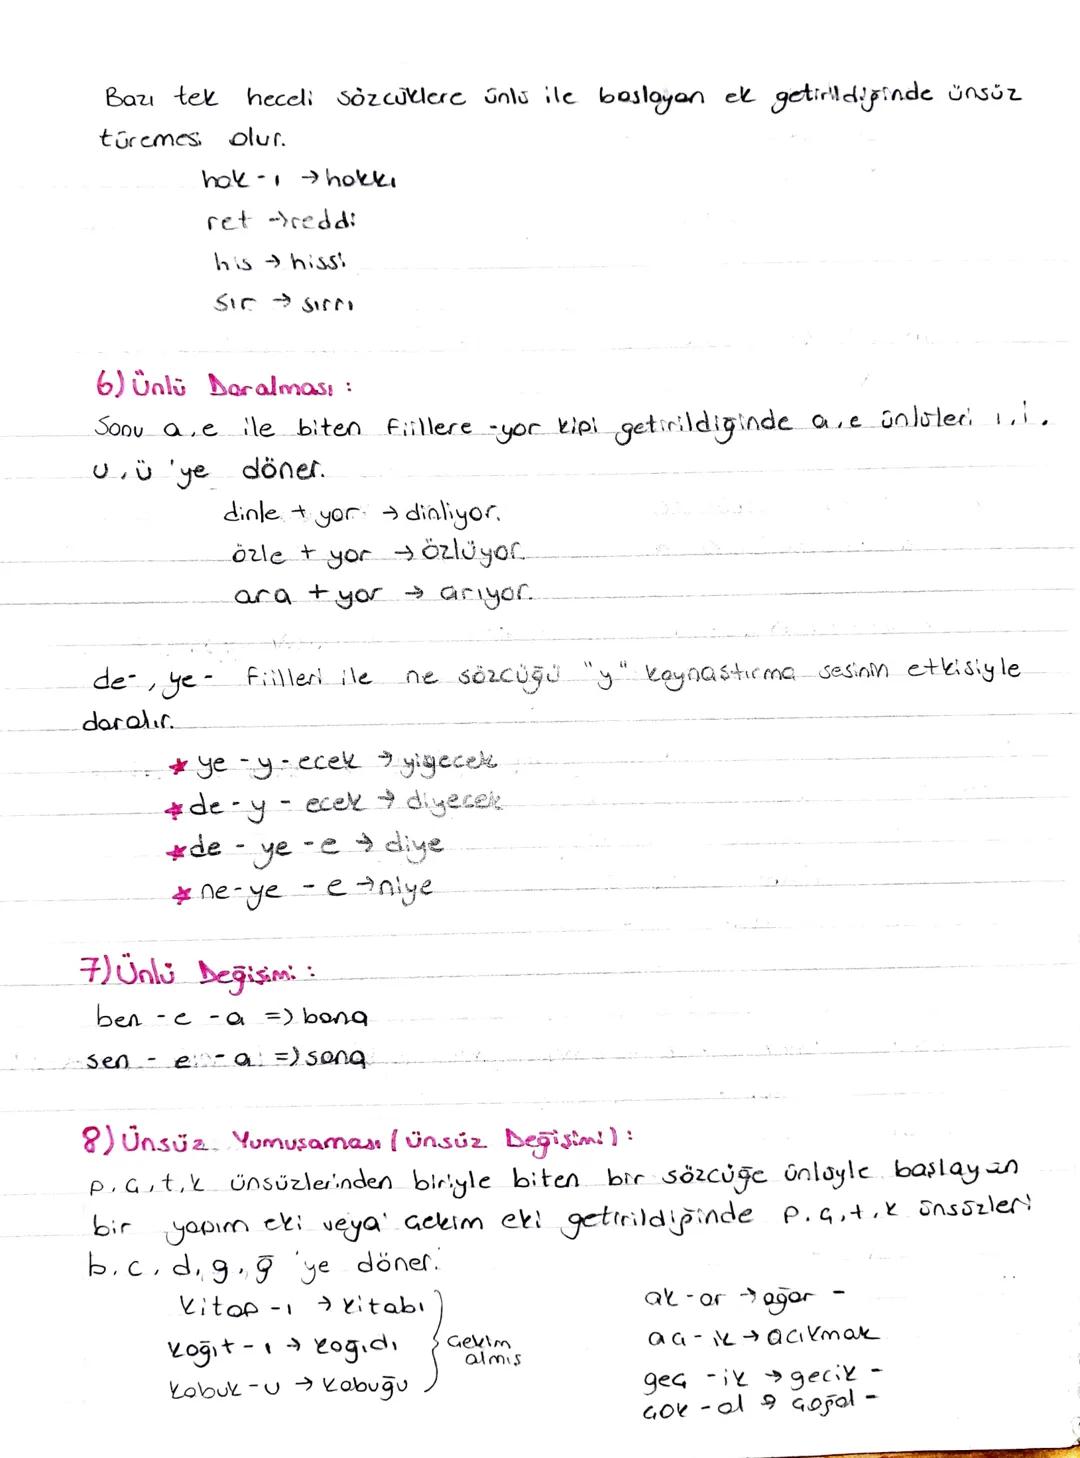 Bazı tek heceli sözcüklere ünlü ile başlayan ek getirildiğinde ünsüz
türemesi olur.
hak-ı → hakkı
ret → reddi
his → hissi
sır → sırrı
6) Ünlü Daralması :
Sonu a,e ile biten fiillere -yor kipi getirildiğinde a,e ünlüleri ı,i,
u,ü 'ye döner.
dinle + yor → dinliyor.
özle + yor → özlüyor.
ara + yor → arıyor.
de-, ye- fiilleri ile ne sözcüğü "y" kaynaştırma sesinin etkisiyle
daralır.
* ye -y-ecek → yiyecek
* de-y-ecek → diyecek
* de - ye -e → diye
* ne-ye -e → niye
7) Ünlü Değişimi :
ben -e -a => bana
sen - e -a => sana
8) Ünsüz Yumuşaması (ünsüz Değişimi) :
p,ç,t,k ünsüzlerinden biriyle biten bir sözcüğe ünlüyle başlayan
bir yapım eki veya çekim eki getirildiğinde p,ç,t,k ünsüzleri
b,c,d,g,ğ 'ye döner.
kitap -ı → kitabı
kağıt -ı → kağıdı
kabuk -u → kabuğu
} çekim
almış
ak-ar → ağar -
acı-ik → acıkmak
geç -ik → gecik -
çok -al → çoğal -